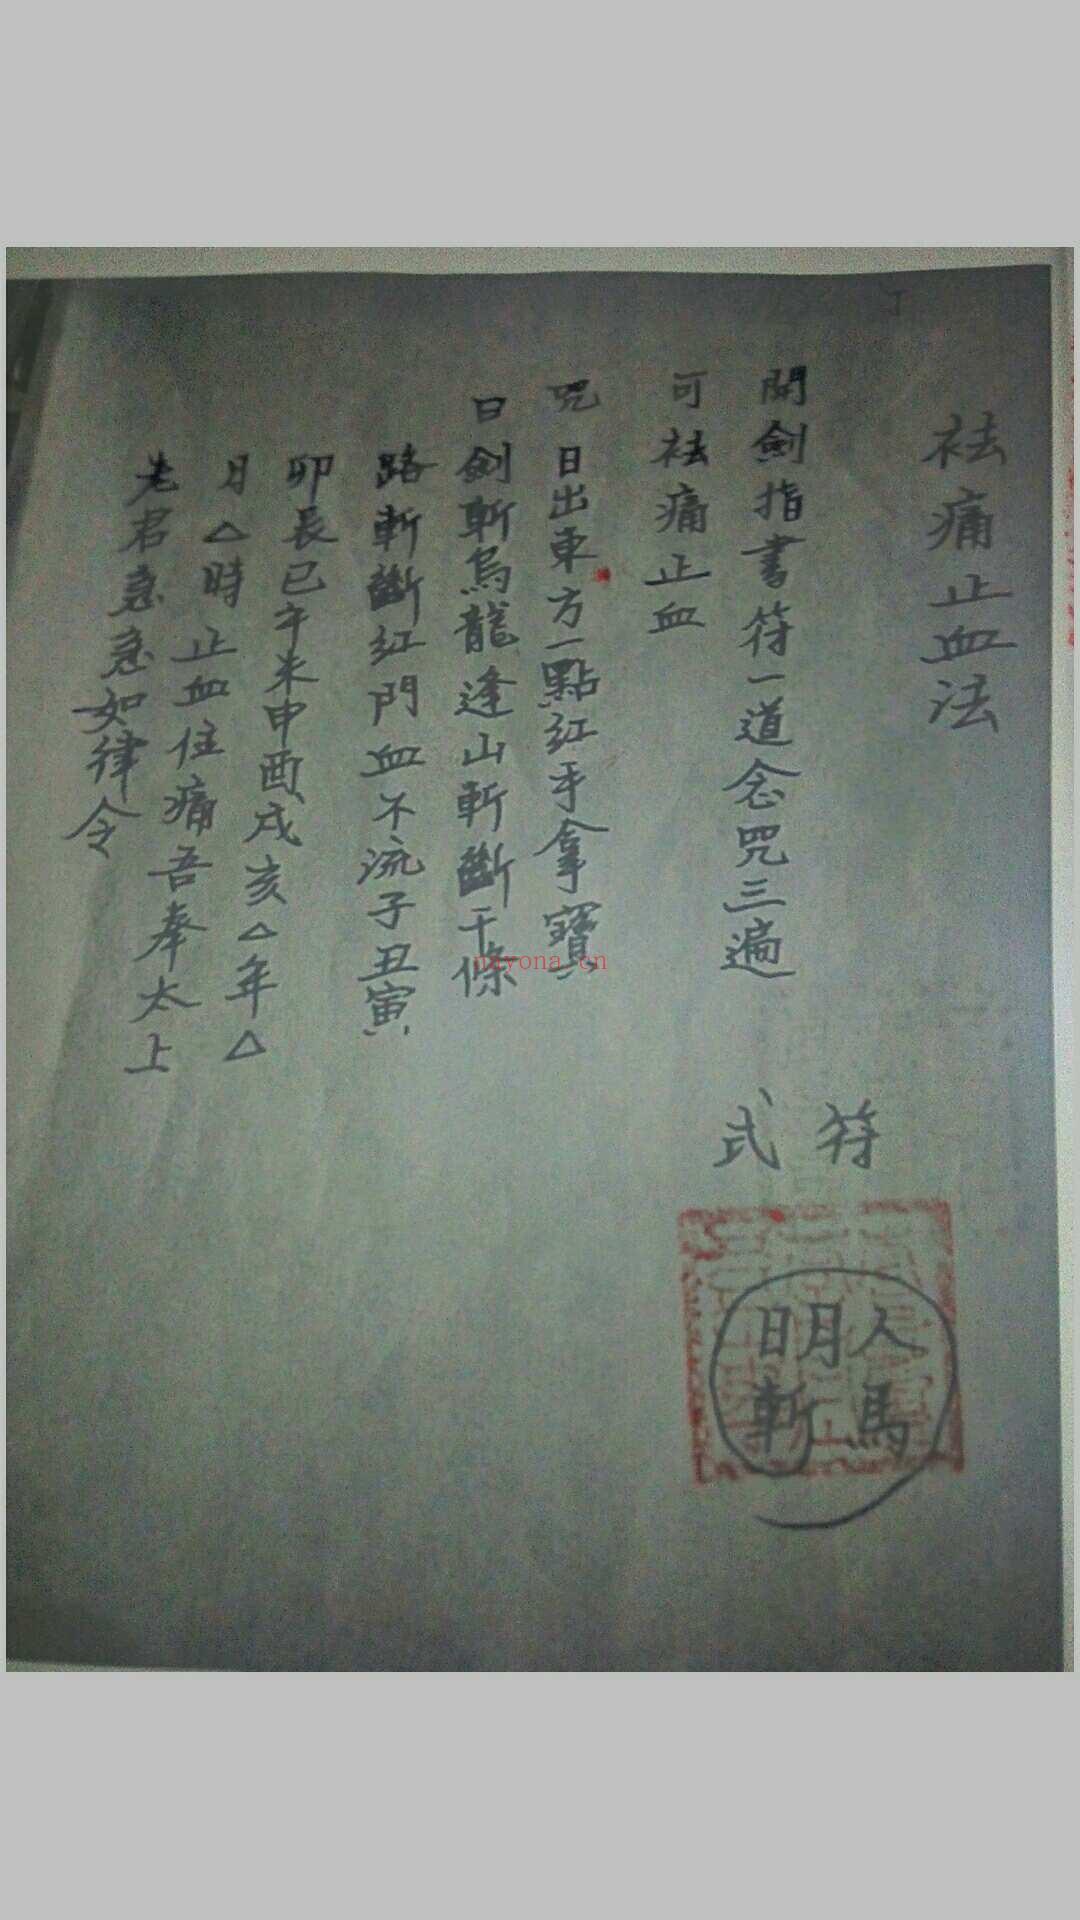 祛痛止血法
開劍指書符一道念咒三遍
可祛痛止血
咒 日出東方一點紅手拿寶
曰 劍斬烏龍逢山斬斷千條
路斬斷紅門血不流子丑寅
卯長巳午未申酉戌亥△年△
月△時止血住痛吾奉太上
老君急急如律令
符式
人月日
馬斬
nayona.cn